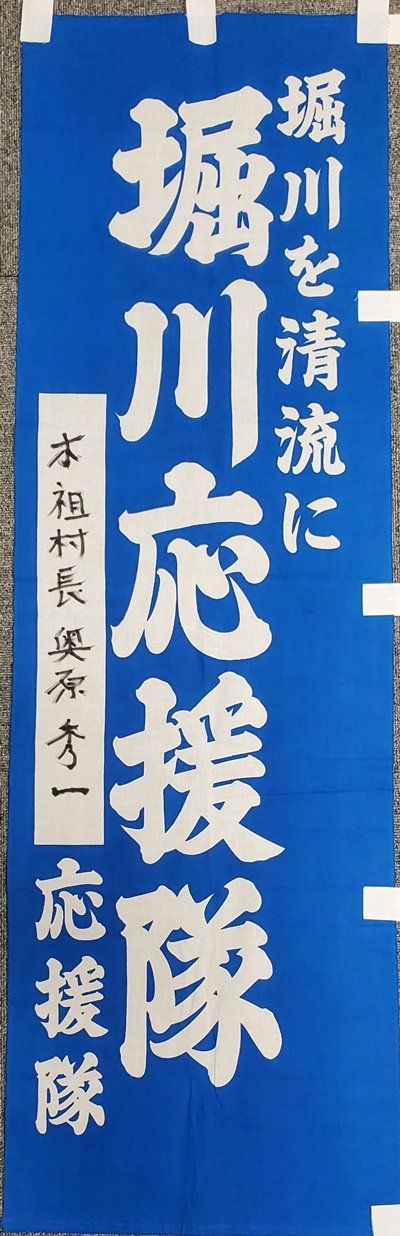 堀川を清流に
堀川応援隊
木祖村長 奥原秀一
応援隊